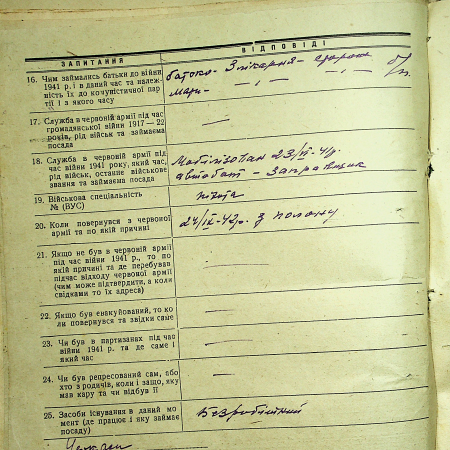 ЗАПИТАННЯ
ВІДПОВІДІ
16. Чим займались батьки до війни
1941 р. і в даний час та належ-
ність їх до комуністичної пар
тії і з якого часу
батько -
сторож
б/п.
мати -
17. Служба в червоній армії під час
громадянської війни 1917—22
років, рід військ та займаєма
посада
—
18. Служба в червоній армії під
час війни 1941 року, який час,
рід військ, останнє військове
звання та займаєма посада
Мобілізован 23/IX-41р.
автобат - Заправщик
19. Військова спеціальність
№ (ВУС)
піхота
20. Коли повернувся з червоної
армії та по якій причині
24/IX-42р. з полону
21. Якщо не був в червоній армії
під час війни 1941 р., то по
якій причині та де перебував
підчас відходу червоної армії
(чим може підтвердити, а коли
свідками то їх адреса)
—
22. Якщо був евакуйований, то ко
ли повернувся та звідки саме
—
23. Чи був в партизанах під час
війни 1941 р. та де саме і
який час
—
24. Чи був репресований сам, або
хто з родичів, коли і защо, яку
мав кару та чи відбув її
—
25. Засоби існування в даний мо
мент (де працює і яку займає
посаду)
Безробітний